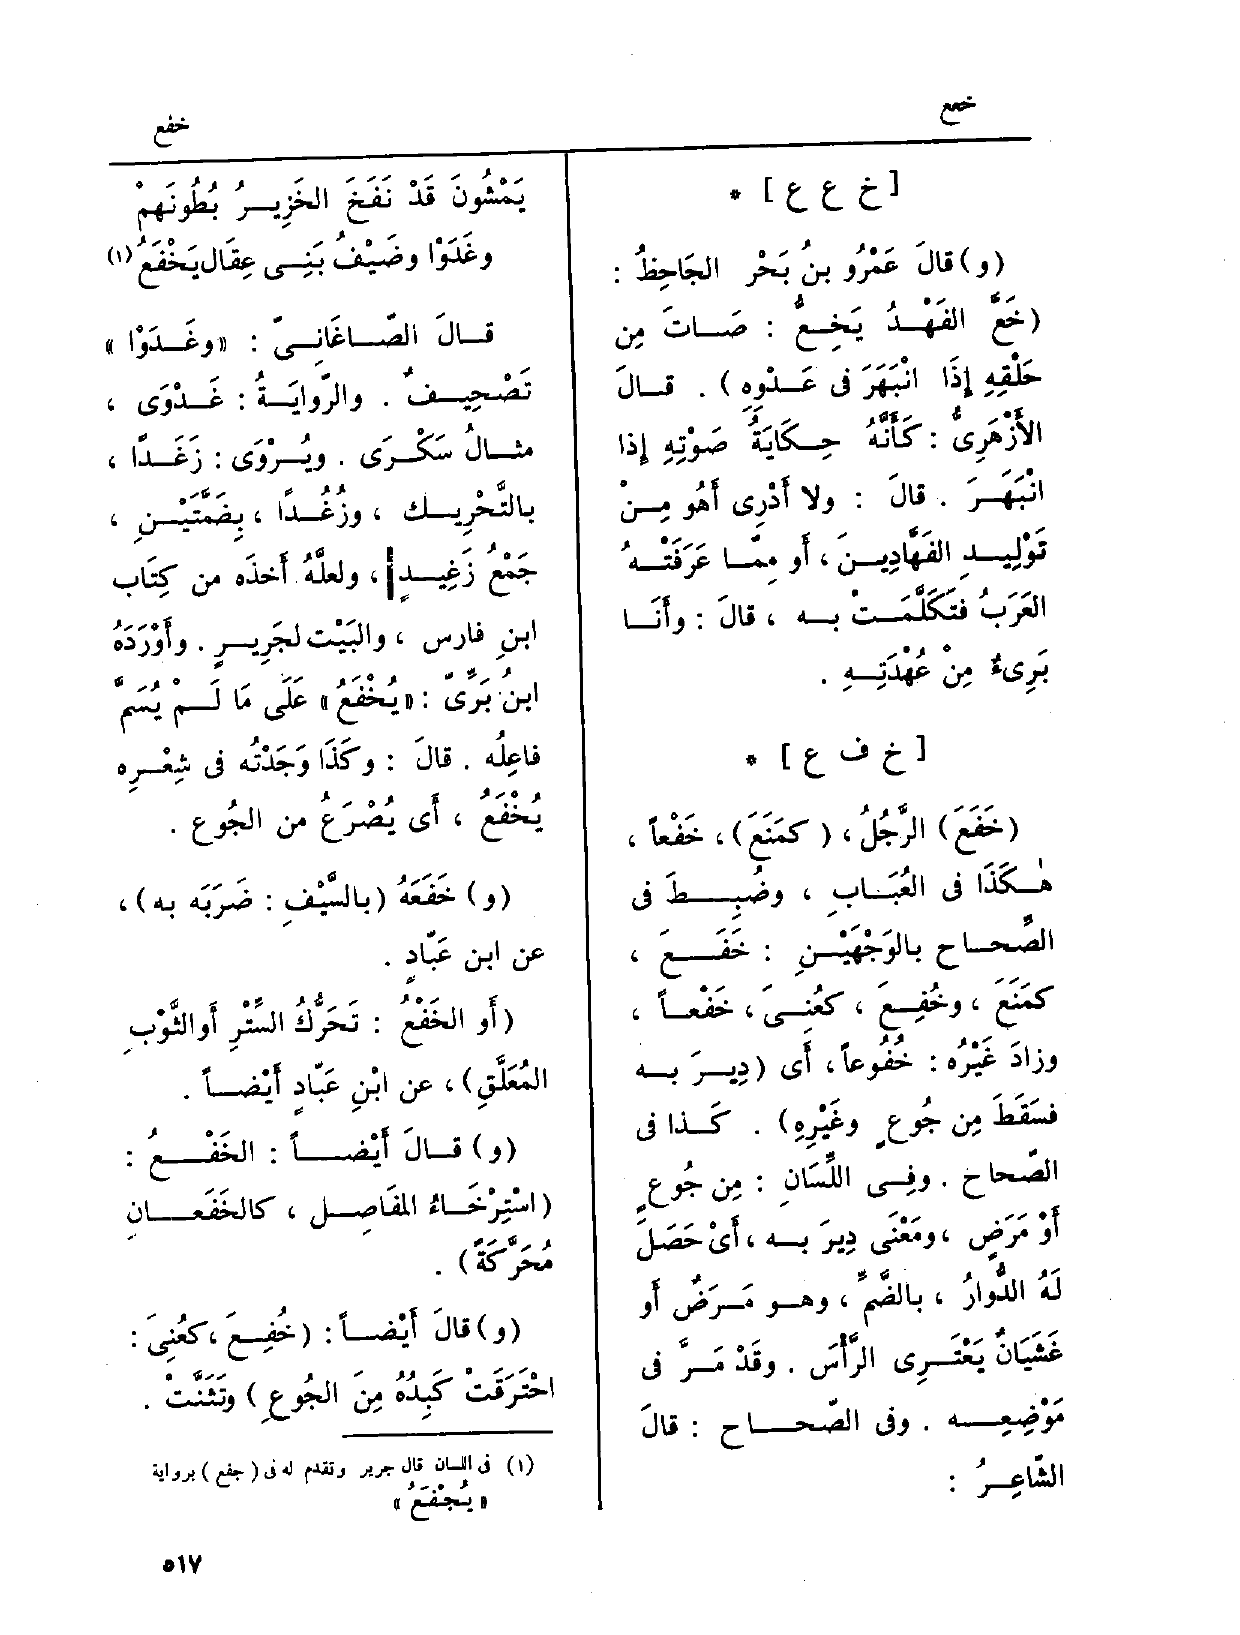 خعع
خفع
[ خ ع ع ] *
(و) قالَ عَمْرُو بنُ بَحْر الجَاحِظُ :
(خَعَّ الفَهْـدُ يَخِـعُّ : صَـاتَ مِن
حَلْقِهِ إِذَا انْبَهَرَ فى عَـدْوِه ) . قـالَ
الأَزْهَرِىُّ : كَأَنَّهُ حِـكَايَةُ صَوْتِهِ إِذا
انْبَهَـرَ . قالَ : ولا أَدْرِى أَهُو مِـنْ
تَوْلِيـدِ الفَهّادِيـنَ ، أَو مِمّـا عَرَفَتْـهُ
العَرَبُ فتَكَلَّمَـتْ بـه ، قالَ : وأَنَـا
بَرِىءٌ مِنْ عُهْدَتِـهِ .
[ خ ف ع ] *
(خَفَعَ) الرَّجُلُ ، ( كمَنَعَ) ، خَفْعاً ،
هٰـكَذَا فى العُبَـابِ ، وضُبِـطَ فى
الصّحـاح بالوَجْهَيْـنِ : خَفَـعَ ،
كمَنَعَ ، وخُفِـعَ ، كعُنِـىَ ، خَفْعـاً ،
وزادَ غَيْرُه : خُفُوعاً ، أَى (دِيـرَ بـه
فسَقَطَ مِن جُوعٍ وغَيْرِه) . كَـذا فى
الصّحاح . وفِـى اللِّسَانِ : مِن جُوعٍ
أَوْ مَرَضٍ ، ومَعْنَى دِيرَ بـه ، أَىْ حَصَلَ
لَهُ الدُّوارُ ، بالضَّمِّ ، وهـو مَـرَضٌ أَو
غَشَيَانٌ يَعْتَـرِى الرَّأْسَ . وقَدْ مَـرَّ فى
مَوْضِعِـه . وفى الصّحـاح : قالَ
الشّاعِـرُ :
يَمْشُونَ قَدْ نَفَخَ الخَزِيـرُ بُطُونَهمْ
وغَلَوْا وضَيْفُ بَنِـى عِقَال يَخْفَعُ (١)
قـالَ الصّـاغَانِـىّ : «وغَـدَوْا »
تَصْحِيـفٌ . والرِّوايَـةُ : غَـدْوَى ،
مثـالُ سَكْـرَى . ويُـرْوَى : زَغَـدًا ،
بالتَّحْرِيـك ، وزُغُـدًا ، بِضَمَّتَيْـنِ ،
جَمْعُ زَغِيـدٍ ، ولعلَّهُ أَخذَه من كِتَاب
ابنِ فارس ، والبَيْت لجَرِيـرٍ . وأَوْرَدَهُ
ابنُ بَرِّىّ : «يُخْفَعُ» عَلَى مَا لَـمْ يُسَمَّ
فاعِلُه . قالَ : وكَذَا وَجَدْتُه فى شِعْـرِه
يُخْفَعُ ، أَى يُصْرَعُ من الجُوع .
(و) خَفَعَهُ (بالسَّيْفِ : ضَرَبَه به) ،
عن ابن عَبّادٍ .
(أَو الخَفْعُ : تَحَرُّكُ السِّتْرِ أَو الثَّوْبِ
المُعَلَّقِ) ، عن ابْنِ عَبّادٍ أَيْضـاً .
(و) قـالَ أَيْضـاً : الخَفْـعُ :
(اسْتِرْخَـاءُ المَفَاصِـل ، كالخَفَعَـانِ
مُحَرَّكَةً) .
(و) قالَ أَيْضـاً : (خُفِـعَ ، كعُنِىَ :
احْتَرَقَتْ كَبِدُهُ مِنَ الجُوعِ ) وتَثَنَّتْ .
(١) فى اللـان قال جرير وتقدم له فى ( جفع ) برواية
« يُجْفَعُ »
٥١٧